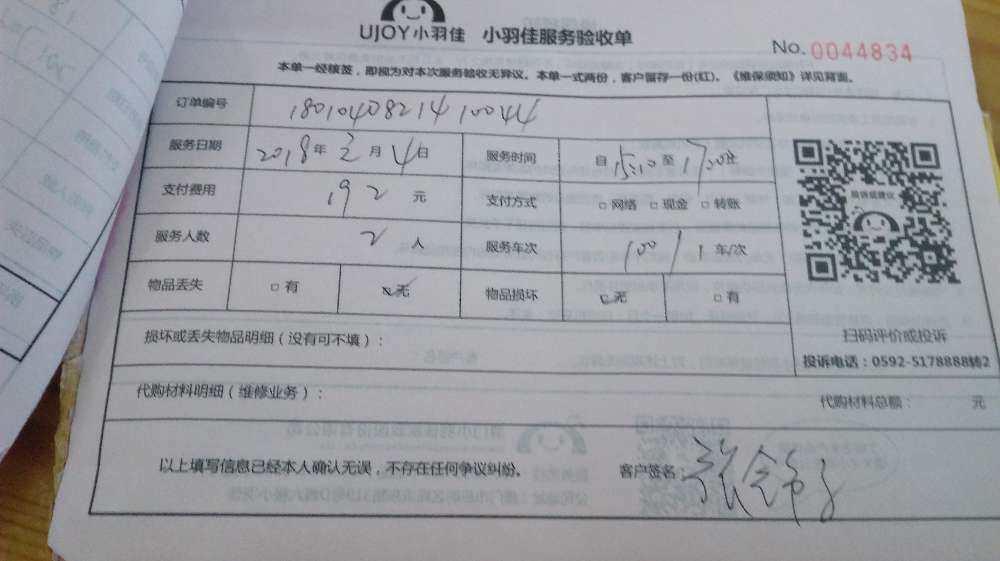 UJOY小羽佳 小羽佳服务验收单
No.0044834
本单一经核签，即视为对本次服务验收无异议。本单一式两份，客户留存一份(红)。《维保须知》详见背面。
订单编号 1801040821410044
服务日期 2018年2月4日 服务时间 自15:10至17:20止
支付费用 192元 支付方式 □网络 □现金 □转账
服务人数 2人 服务车次 100/1车/次
投诉或建议
物品丢失 □有 □无 物品损坏 □无 □有
扫码评价或投诉
损坏或丢失物品明细（没有可不填）：
投诉电话：0592-5178888转2
代购材料明细（维修业务）：
代购材料总额： 元
以上填写信息已经本人确认无误，不存在任何争议纠纷。 客户签名：